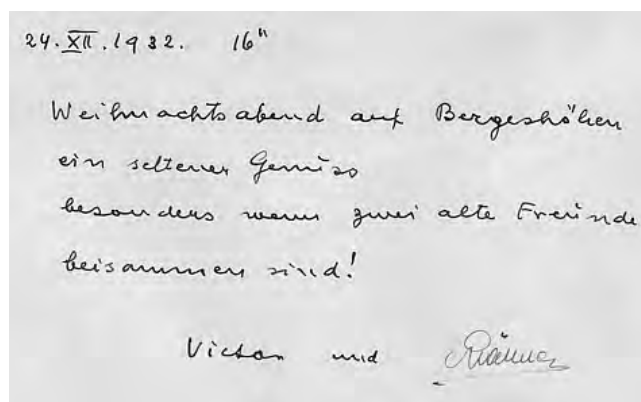 24. XII. 1932. 16"
Weihnachtsabend auf Bergeshöhen
ein seltener Genuss
besonders wenn zwei alte Freunde
beisammen sind!
Victor und